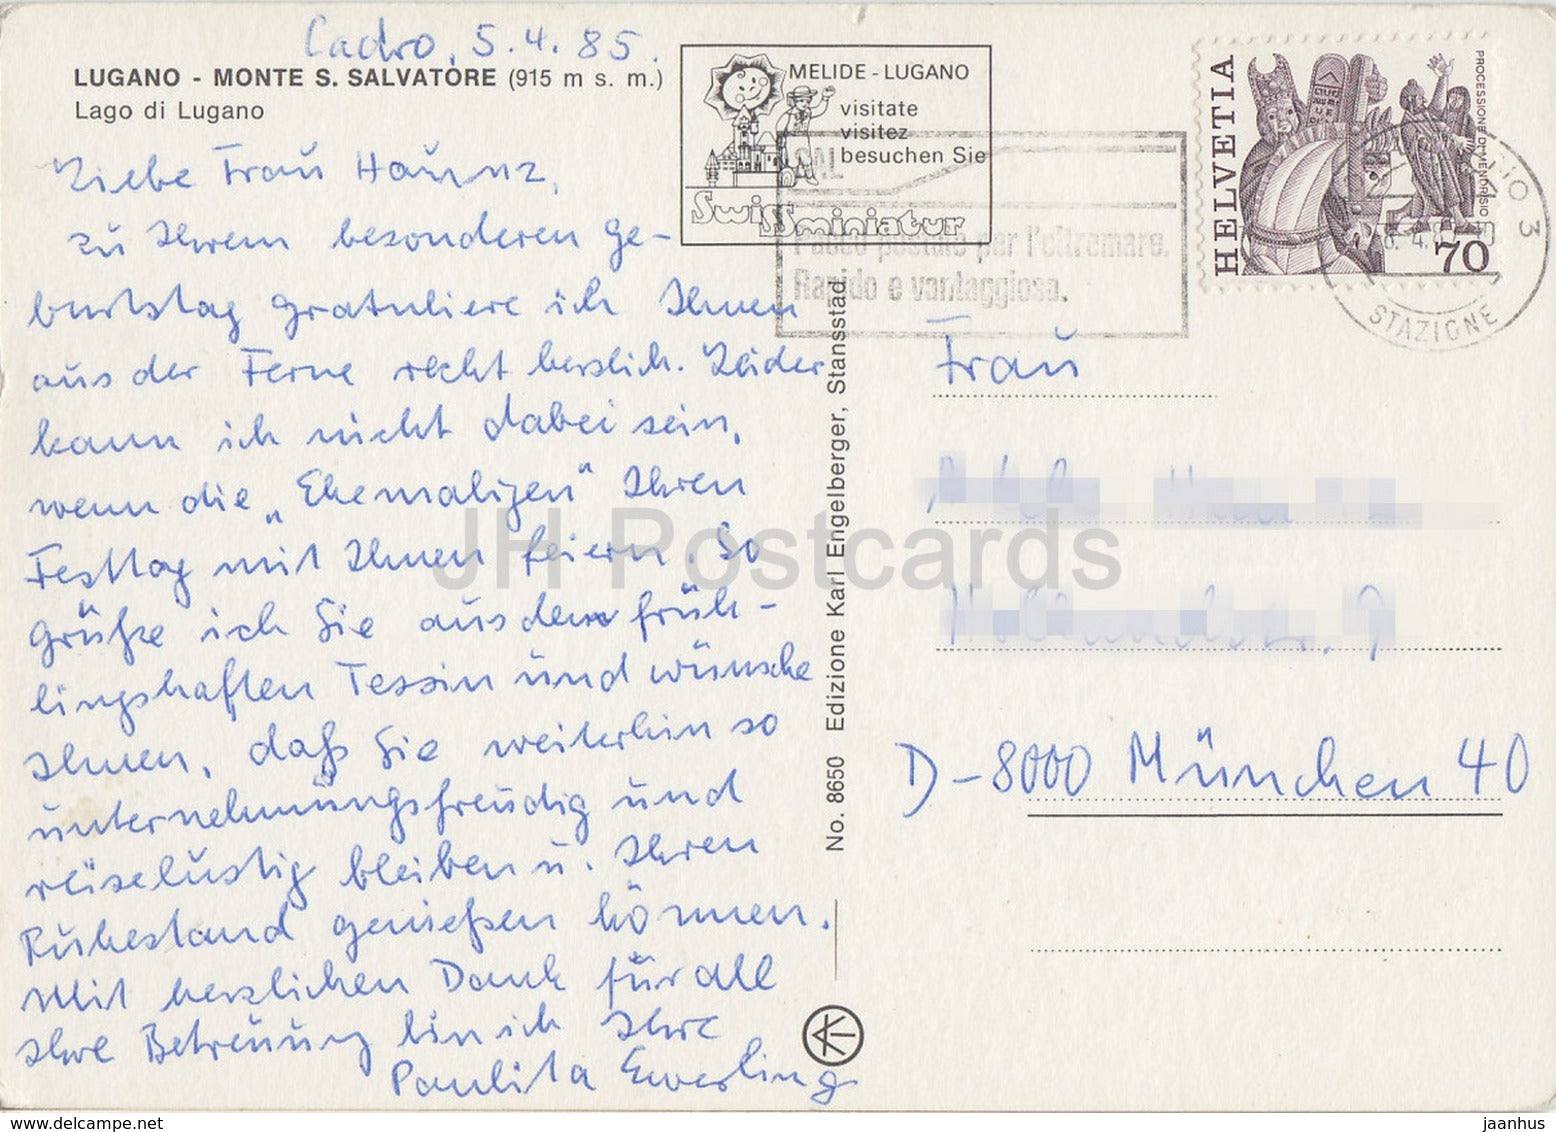 Cadro, 5.4.85.
LUGANO - MONTE S. SALVATORE (915 m s. m.)
Lago di Lugano
Liebe Frau Haunz,
zu Ihrem besonderen Ge-
burtstag gratuliere ich Ihnen
aus der Ferne recht herzlich. Leider
kann ich nicht dabei sein,
wenn die „Ehemaligen“ Ihren
Festtag mit Ihnen feiern. So
grüße ich Sie aus dem früh-
lingshaften Tessin und wünsche
Ihnen, daß Sie weiterhin so
unternehmungsfreudig und
reiselustig bleiben u. Ihren
Ruhestand genießen können.
Mit herzlichen Dank für all
Ihre Betreuung bin ich Ihre
Paulita Ewerling
No. 8650 Edizione Karl Engelberger, Stansstad
MELIDE - LUGANO
visitate
visitez
besuchen Sie
Swissminiatur
SAL
Pacco postale per l'oltremare.
Rapido e vantaggiosa.
HELVETIA
PROCESSIONE DI MENDRISIO
70
3
STAZIONE
Frau
D-8000 München 40
JH Postcards
www.delcampe.net
jaanhus